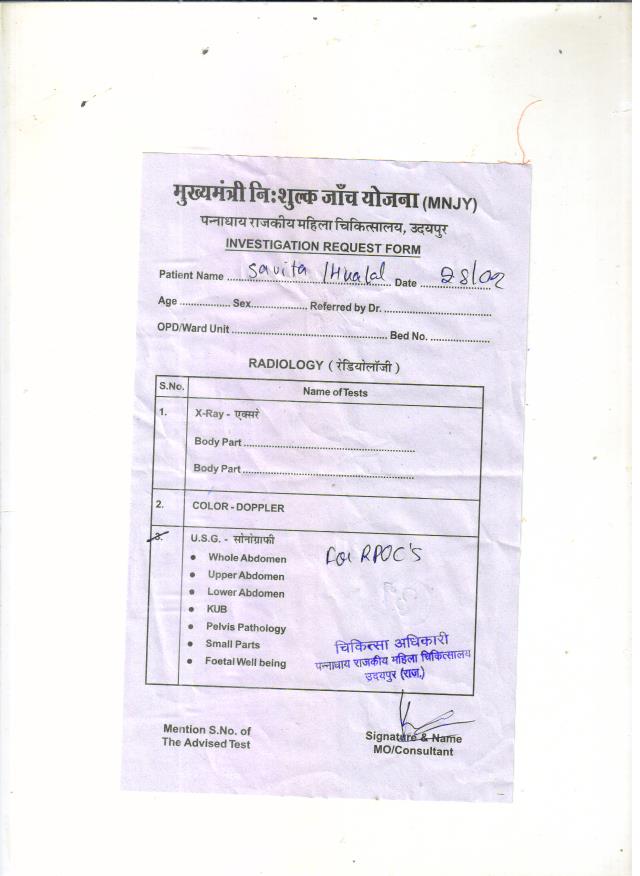 मुख्यमंत्री निःशुल्क जाँच योजना (MNJY)
पन्नाधाय राजकीय महिला चिकित्सालय, उदयपुर
INVESTIGATION REQUEST FORM
Patient Name ........ Savita / Date ........ 28/02
Age ........ Sex ........ Referred by Dr. ........
OPD/Ward Unit ........ Bed No. ........
RADIOLOGY ( रेडियोलॉजी )
S.No. Name of Tests
1. X-Ray - एक्सरे
Body Part ........
Body Part ........
2. COLOR - DOPPLER
3. U.S.G. - सोनोग्राफी
• Whole Abdomen for RPOC'S
• Upper Abdomen
• Lower Abdomen
• KUB
• Pelvis Pathology
• Small Parts
• Foetal Well being
चिकित्सा अधिकारी
पन्नाधाय राजकीय महिला चिकित्सालय
उदयपुर (राज.)
Mention S.No. of
The Advised Test
Signature & Name
MO/Consultant